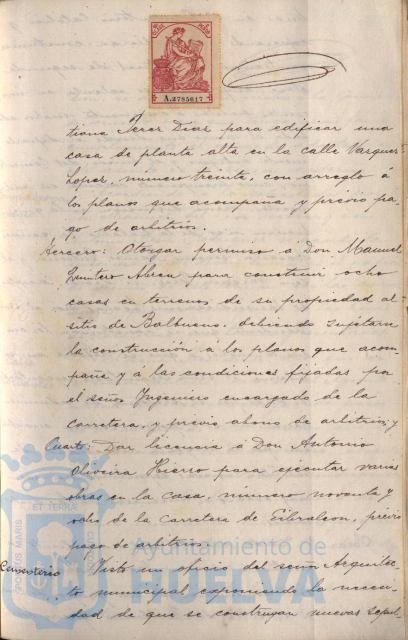 A.2785617
tiana Jerez Diaz para edificar una
casa de planta alta en la calle Vazquez
Lopez, número treinta, con arreglo á
los planos que acompaña y previo pa-
go de arbitrios.
Tercero: Otorgar permiso á Don Manuel
Quintero Abreu para construir ocho
casas en terrenos de su propiedad al
sitio de Balbueno, debiendo sujetarse
la construcción á los planos que acom-
paña y á las condiciones fijadas por
el señor Ingeniero encargado de la
carretera, y previo abono de arbitrios; y
Cuarto: Dar licencia á Don Antonio
Oliveira Hierro para ejecutar varias
obras en la casa, número noventa y
ocho de la carretera de Gibraleon, previo
pago de arbitrios.
Cementerio Visto un oficio del señor Arquitec-
to municipal exponiendo la necesi-
dad de que se construyan nuevas sepul-
PORTUS MARIS ET TERRAE
Ayuntamiento de
HUELVA